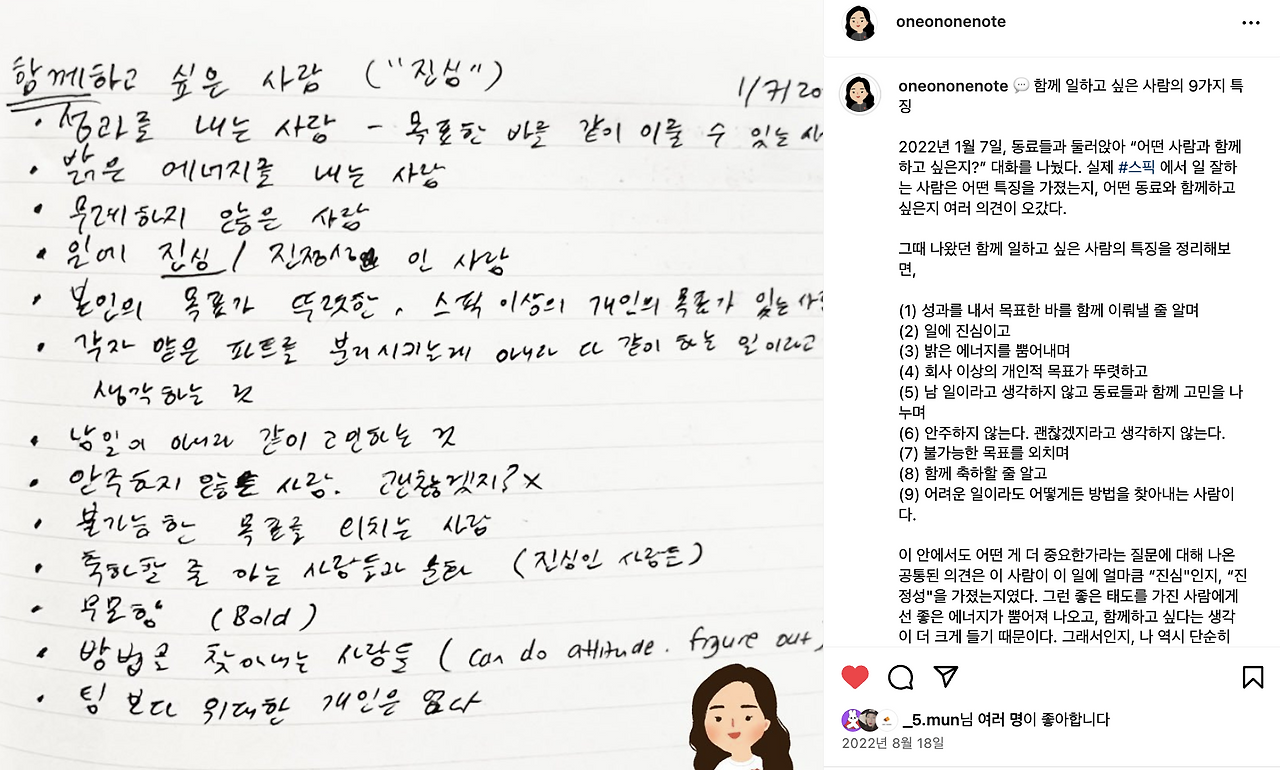 함께하고 싶은 사람 ("진심")
1/7/20
· 성과를 내는 사람 - 목표한 바를 같이 이룰 수 있는 사
· 밝은 에너지를 내는 사람
· 무례하지 않은 사람
· 일에 진심 / 진정성 인 사람
· 본인의 목표가 뚜렷한, 스픽 이상의 개인의 목표가 있는 사
· 각자 맡은 파트를 분리시키는게 아니라 다 같이 하는 일이라고
생각하는 것
· 남일이 아니라 같이 고민하는 것
· 안주하지 않는 사람. 괜찮겠지? X
· 불가능한 목표를 외치는 사람
· 축하할 줄 아는 사람들과 문화 (진심인 사람들)
· 무모함 (Bold)
· 방법을 찾아내는 사람들 (can do attitude. figure out)
· 팀 보다 위대한 개인은 없다
oneononenote
oneononenote 💬 함께 일하고 싶은 사람의 9가지 특
징
2022년 1월 7일, 동료들과 둘러앉아 “어떤 사람과 함께
하고 싶은지?” 대화를 나눴다. 실제 #스픽 에서 일 잘하
는 사람은 어떤 특징을 가졌는지, 어떤 동료와 함께하고
싶은지 여러 의견이 오갔다.
그때 나왔던 함께 일하고 싶은 사람의 특징을 정리해보
면,
(1) 성과를 내서 목표한 바를 함께 이뤄낼 줄 알며
(2) 일에 진심이고
(3) 밝은 에너지를 뿜어내며
(4) 회사 이상의 개인적 목표가 뚜렷하고
(5) 남 일이라고 생각하지 않고 동료들과 함께 고민을 나
누며
(6) 안주하지 않는다. 괜찮겠지라고 생각하지 않는다.
(7) 불가능한 목표를 외치며
(8) 함께 축하할 줄 알고
(9) 어려운 일이라도 어떻게든 방법을 찾아내는 사람이
다.
이 안에서도 어떤 게 더 중요한가라는 질문에 대해 나온
공통된 의견은 이 사람이 이 일에 얼마큼 “진심"인지, “진
정성"을 가졌는지였다. 그런 좋은 태도를 가진 사람에게
선 좋은 에너지가 뿜어져 나오고, 함께하고 싶다는 생각
이 더 크게 들기 때문이다. 그래서인지, 나 역시 단순히
_5.mun님 여러 명이 좋아합니다
2022년 8월 18일